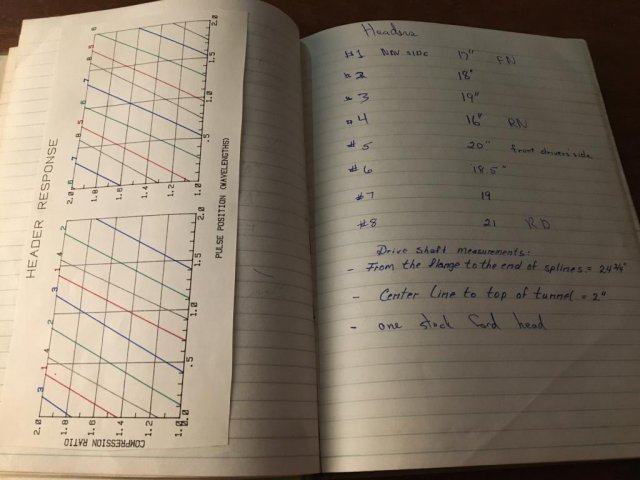 HEADER RESPONSE
COMPRESSION RATIO
PULSE POSITION (WAVELENGTHS)
2.0
1.8
1.6
1.4
1.2
1.0
0.0
.5
1.0
1.5
2.0
3
1
4
3
2
4
1
2
2.0
1.8
1.6
1.4
1.2
1.0
.5
1.0
1.5
2.0
7
6
8
5
7
6
8
5
6
Headers
#1 NAV SIDE 17" FN
#2 18"
#3 19"
#4 16" RN
#5 20" front drivers side
#6 18.5"
#7 19
#8 21 RD
Drive shaft measurements:
- From the flange to the end of splines = 24 3/4"
- Center Line to top of tunnel = 2"
- one stock Ford head